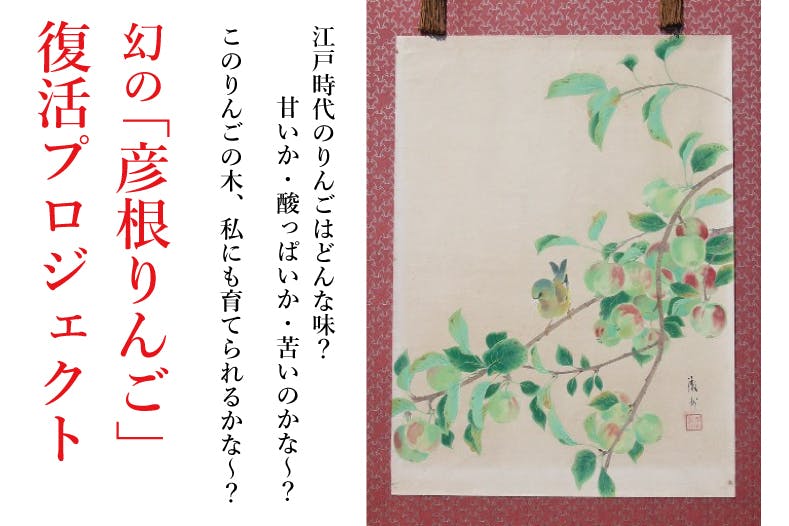 江戸時代のりんごはどんな味？
甘いか・酸っぱいか・苦いのかな〜？
このりんごの木、私にも育てられるかな〜？
幻の「彦根りんご」
復活プロジェクト